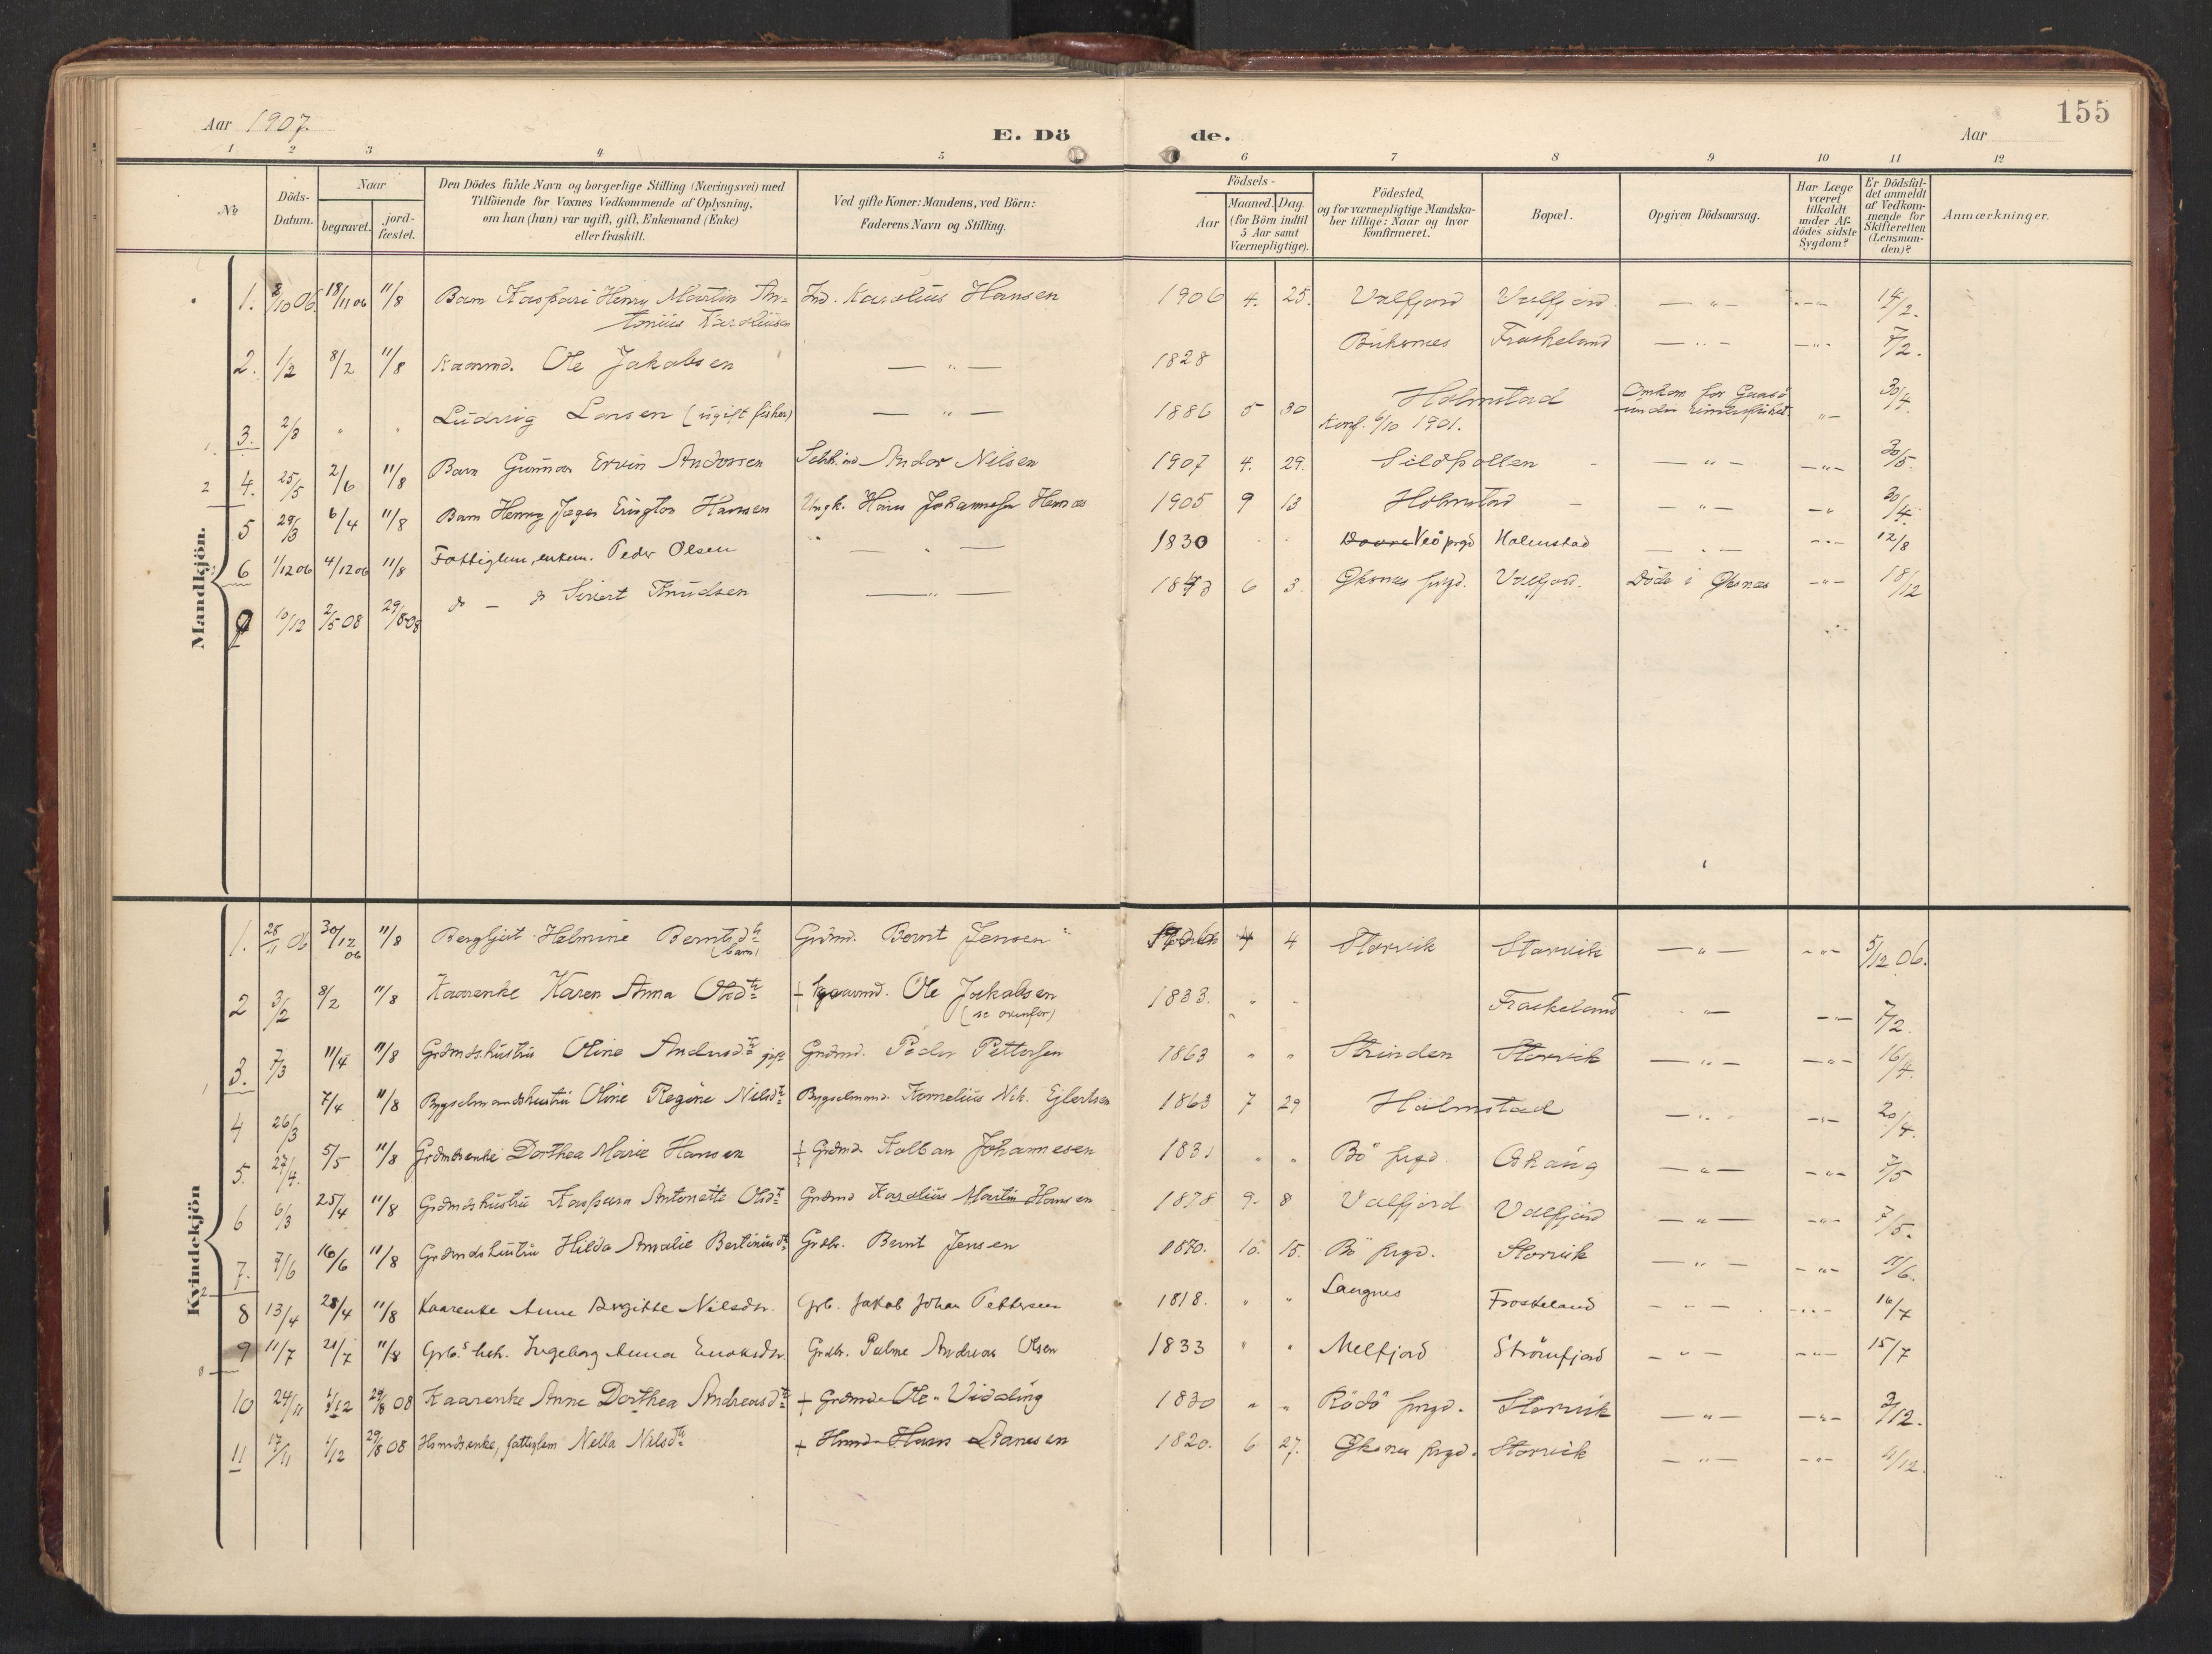 155
Aar 1907.
E. Dö de.
Aar
1 2 3 4 5 6 7 8 9 10 11 12
No
Döds-Datum.
Naar
begravet.
jord-fæstet.
Den Dödes fulde Navn og borgerlige Stilling (Næringsvei) med
Tilföiende for Voxnes Vedkommende af Oplysning,
om han (hun) var ugift, gift, Enkemand (Enke)
eller fraskilt.
Ved gifte Koner: Mandens, ved Börn:
Faderens Navn og Stilling.
Födsels-
Aar
Maaned. Dag.
(for Börn indtil
5 Aar samt
Værnepligtige).
Födested,
og for værnepligtige Mandska-
ber tillige: Naar og hvor
konfirmeret.
Bopæl.
Opgiven Dödsaarsag.
Har Læge
været
tilkaldt
under Af-
dödes sidste
Sygdom?
Er Dödsfal-
det anmeldt
af Vedkom-
mende for
Skifteretten
(Lensman-
den)?
Anmærkninger.
Mandkjön.
1. 2/10 06. 18/11 06 11/8 Barn Kaspari Henry Martin An- Ind. Karolius Hansen 1906 4. 25. Valfjord Valfjord — " — - " - 14/2.
tonius Karoliussen
2. 1/2 8/2 11/8 Kaarmd. Ole Jakobsen — " — 1828 Buksnes Fraskeland — " — - " - 7/2.
3. 2/3 " " Ludvig Larsen (ugift fisker) — " — 1886 5 30 Holmstad Omkom for Gaasö - " - 30/4.
Konf. 6/10 1901. under vinterfisket
4. 25/5 2/6 11/8 Barn Gunnar Ervin Andorsen Andor Nilsen 1907 4. 29. Sildpollen - — " — - " - 30/5.
5 29/3 6/4 11/8 Barn Henry Jæger Erington Hansen Ungk. Hans Johannessen 1905 9 13 Holmstad - — " — - " 30/4.
6 1/12 06 4/12 06 11/8 Fattiglem, enkem. Peder Olsen — " — 1830 Veö prgd Holmstad — " — - " - 12/8
7 10/12 2/5 08 29/8 08 do — do Sivert Knudsen — " — 6 3. Öksnes prgd. Valfjord. Döde i Öksnes - " - 18/12
Kvindekjön
1. 28/11 06 30/12 06 11/8 Bergljot Helmine Berntsdtr Grdmd. Bernt Jensen 1906 4 4 Storvik Storvik — " — - " - 5/12 06.
(barn)
2 3/2 8/2 11/8 Kaarenke Karen Anna Olsdtr + Kaarmd. Ole Jakobsen 1833. " " Fraskeland - " — - " - 7/2.
(se ovenfor)
3. 7/3 11/4 11/8 Grdmds.hustru Oline Andersdtr gift Grdmd. Peder Pettersen 1863 " " Strinden Storvik — " — - " - 16/4.
4 26/3 7/4 11/8 Bygselmandshustru Oline Regine Nilsdtr Bygselmand. Kornelius Nik. Ejlertsen 1863 7 29 Holmstad — " - - " - 20/4.
5. 27/4. 5/5 11/8 Grdmdsenke Dorthea Marie Hansen + Grdmd. Kolban Johannesen 1831 " " Bö prgd. Askaug — " — - " - 7/5
6 6/3 25/4 11/8 Grdmdshustru Kaspara Antonette Olsdtr Grdmd Karolius Martin Hansen 1878 9. 8 Valfjord Valfjord — " — - " - 7/5.
7. 7/6 16/6 11/8 Grdmdshustru Hilda Amalie Bertinusdtr Grdbr. Bernt Jensen 1870. 10. 15. Bö prgd. Storvik — " — - " - 11/6.
8 13/4 28/4 11/8 Kaarenke Anne Birgitte Nilsdtr. Grb. Jakob Johan Pettersen 1818. " " Langnes Froskeland — " — - " - 16/7
9 11/7 21/7 11/8 Grb.s hst. Ingeborg Anna Enoksdtr. Grdbr. Palme Andreas Olsen 1833 " " Melfjord Strömfjord — " — - " - 15/7
10 24/11 1/12 29/8 08 Kaarenke Anne Dorthea Andreasdtr + Grdmd. Ole Vidaling 1830 " " Rödö prgd. Storvik — " — - " - 3/12.
11 17/11 1/12 29/8 08 Hsmdsenke, fattiglem Nella Nilsdtr + Hsmd. Hans Danesen 1820. 6 27. Öksnes prgd. Storvik — " — - " - 4/12.